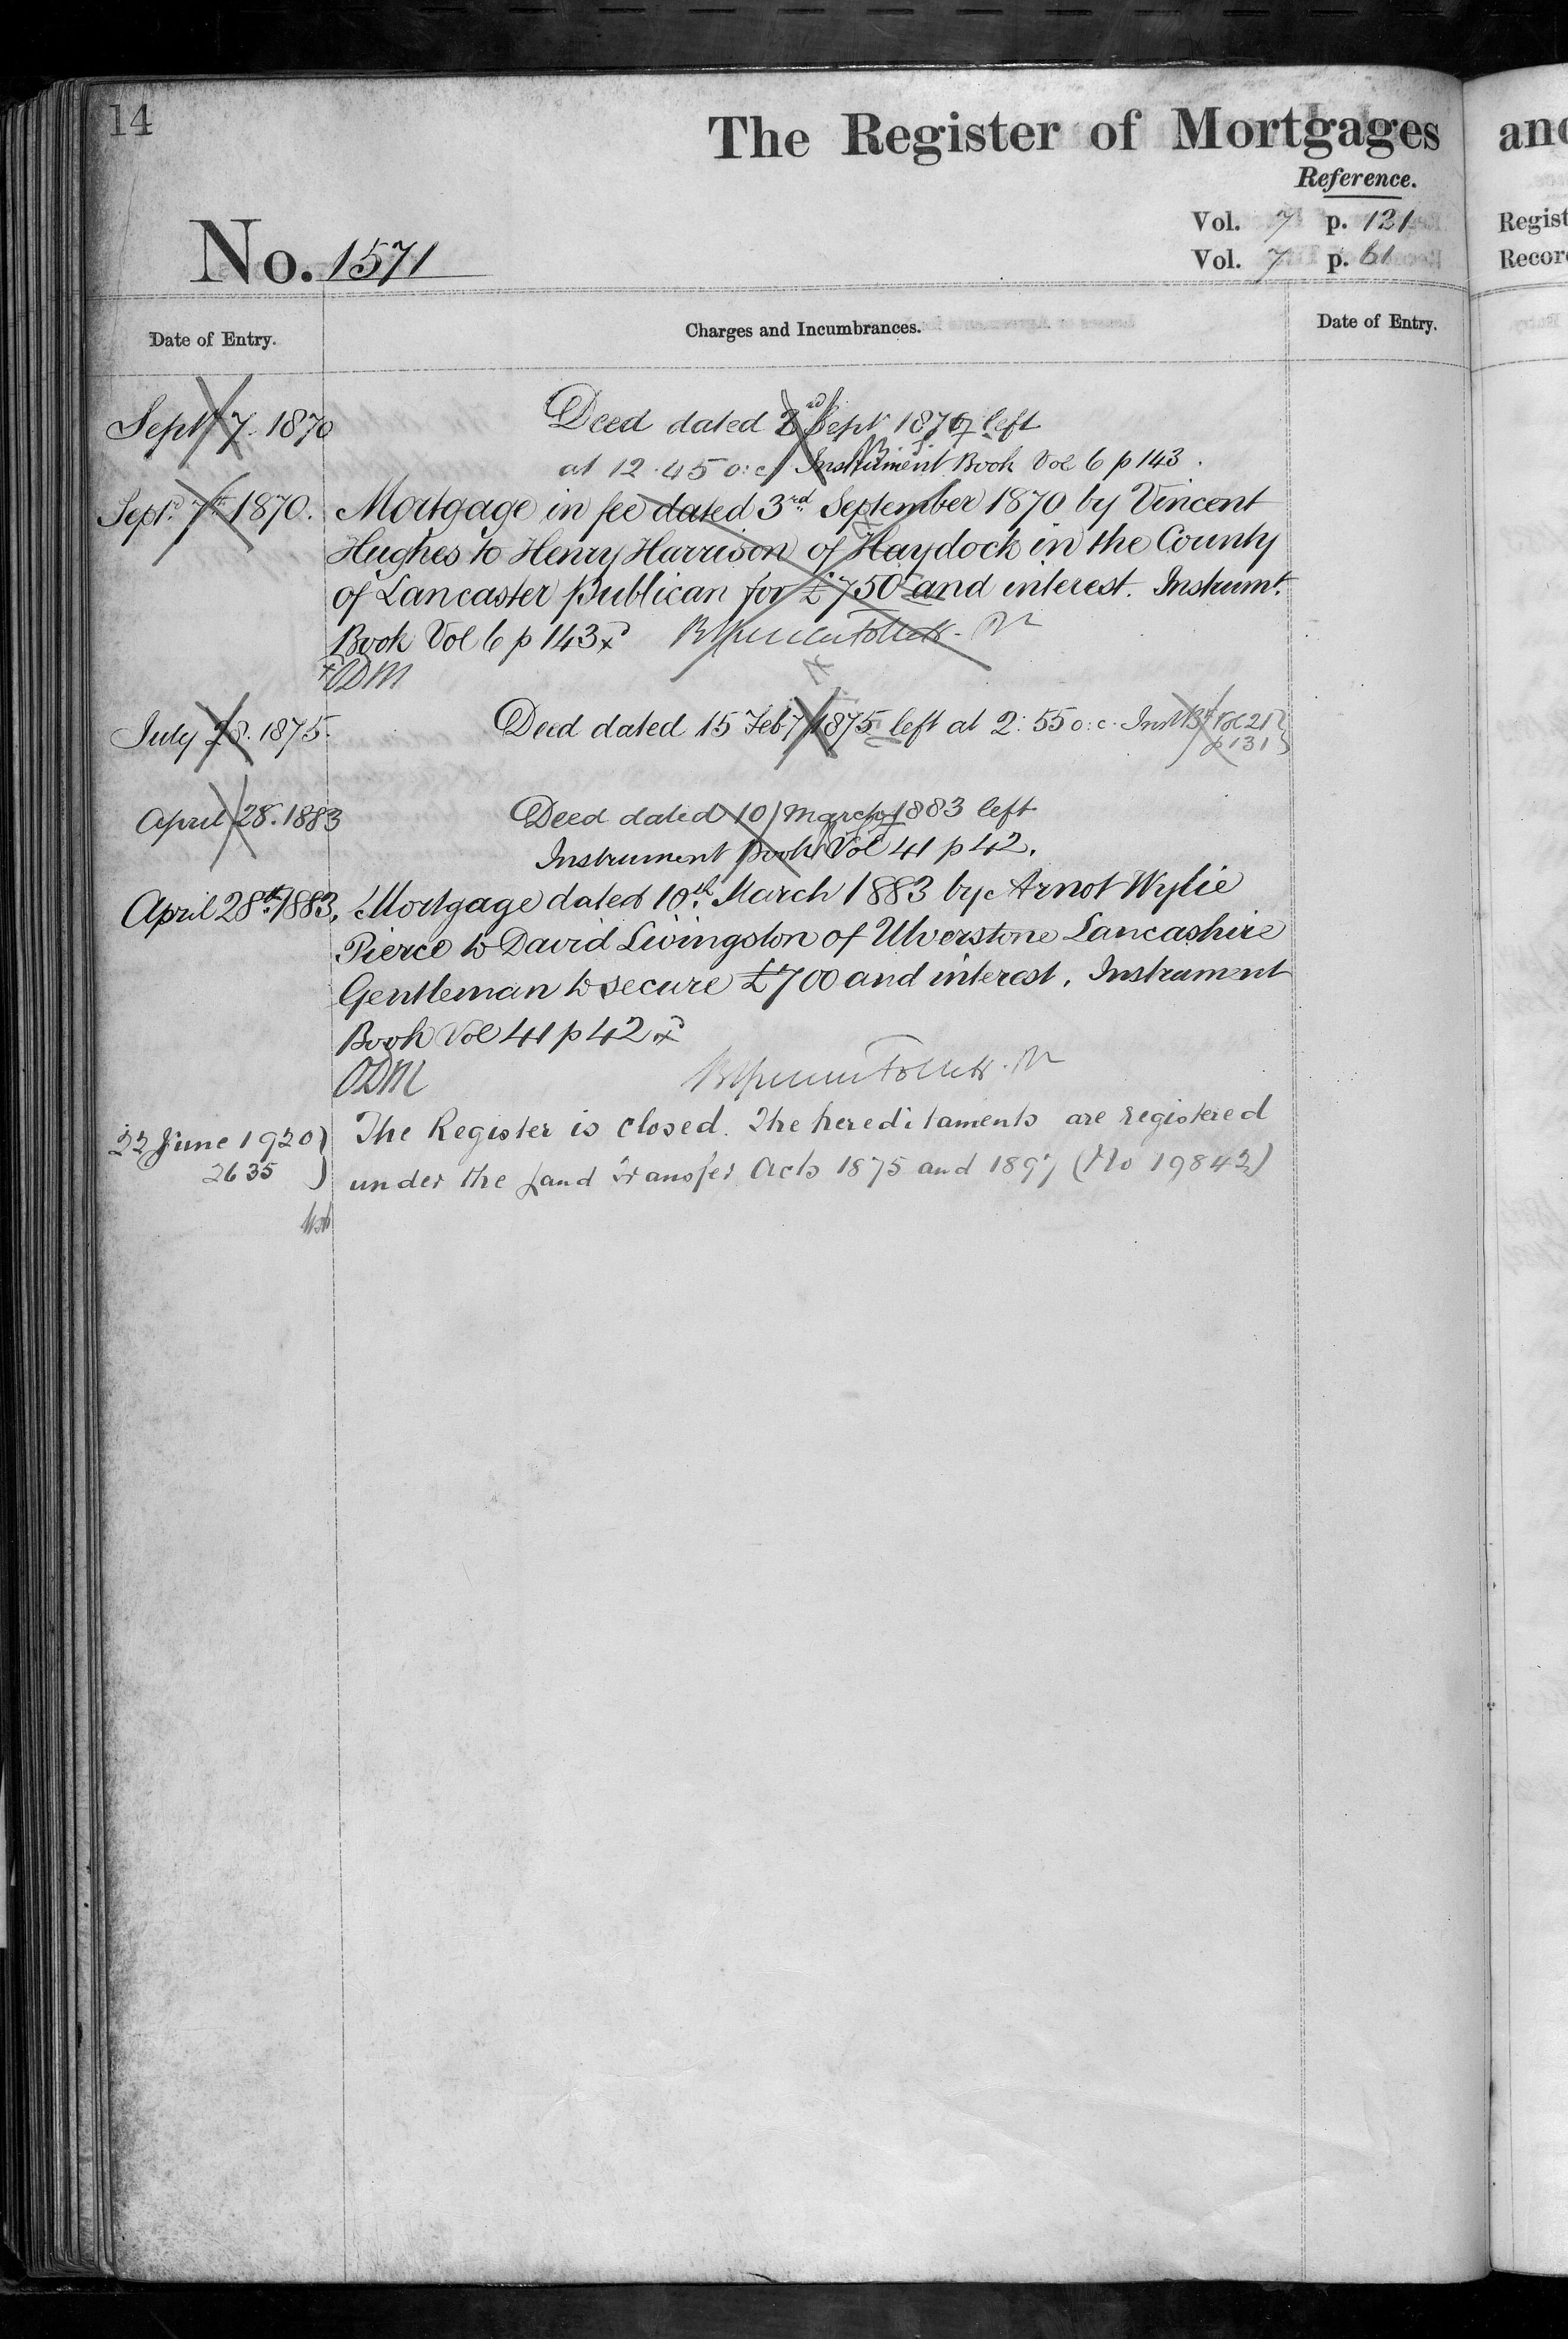 14
The Register of Mortgages
Reference.
Vol. 7 p. 121
Vol. 7 p. 61
No. 1571
Date of Entry.
Charges and Incumbrances.
Date of Entry.
Sept 7. 1870
Deed dated Sept 1870 left
at 12.45 o:c/ Instrument Book Vol 6 p 143.
Sept. 7th 1870.
Mortgage in fee dated 3rd September 1870 by Vincent
Hughes to Henry Harrison of Haydock in the County
of Lancaster publican for £750 and interest. Instrumt.
Book Vol 6 p 143 x
x ODM
July 28. 1875.
Deed dated 15 Feby 1875 left at 2:55 o:c. Inst Bk Vol 21
p 131
April 28. 1883
Deed dated 10 March 1883 left
Instrument Book Vol 41 p 42.
April 28th 1883.
Mortgage dated 10th March 1883 by Arnot Wylie
Pierce to David Livingston of Ulverstone Lancashire
Gentleman to secure £700 and interest. Instrument
Book Vol 41 p 42 x
ODM
22 June 1920
2635
The Register is closed. The hereditaments are registered
under the Land Transfer Acts 1875 and 1897 (No 19842)
and
Regist
Recor